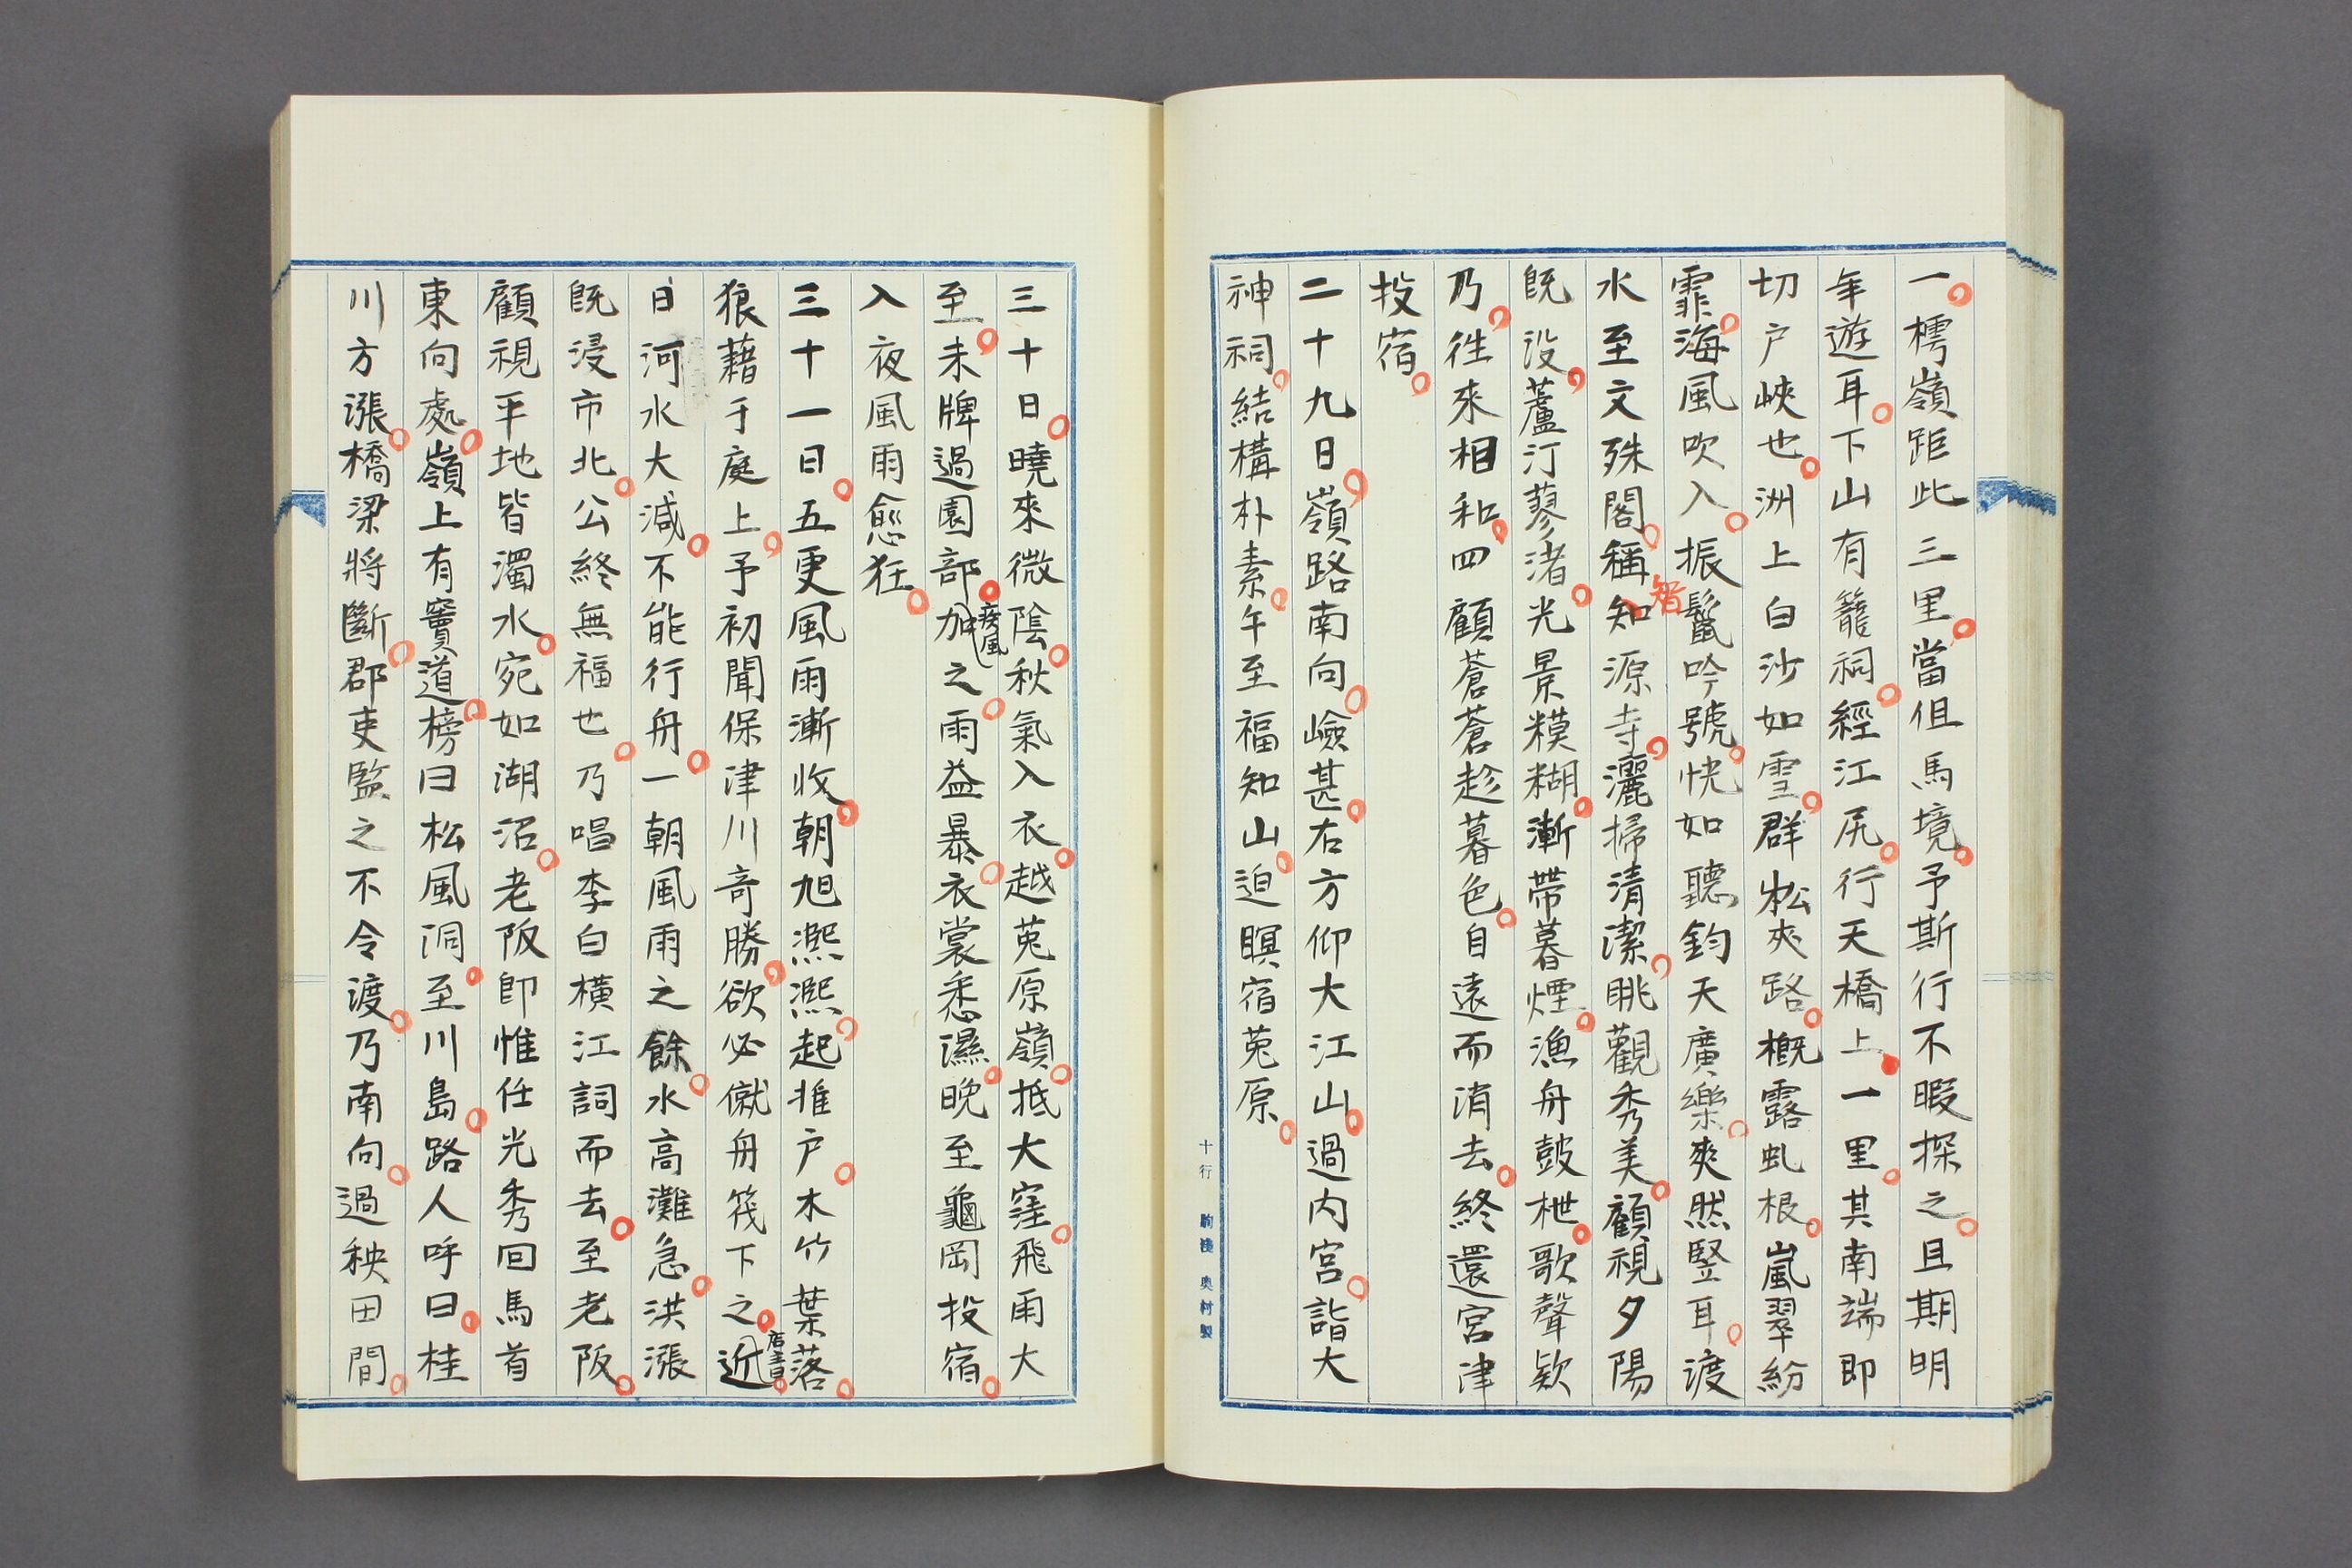 一樗嶺距此三里當但馬境予斯行不暇探之且期明
年遊耳下山有籠祠經江尻行天橋上一里其南端即
切戶峽也洲上白沙如雪群松夾路概露虬根嵐翠紛
霏海風吹入振鬣吟號恍如聽鈞天廣樂爽然竪耳渡
智
水至文殊閣稱知源寺灑掃清潔眺觀秀美顧視夕陽
既沒蘆汀蓼渚光景糢糊漸帶暮煙漁舟鼓枻歌聲欵
乃徃來相和四顧蒼蒼趁暮色自遠而消去終還宮津
投宿
二十九日嶺路南向嶮甚右方仰大江山過内宮詣大
神祠結構朴素午至福知山迫瞑宿菟原
十行
三十日曉來微陰秋氣入衣越菟原嶺抵大窪飛雨大
至未牌過園部加之雨益暴衣裳悉濕晩至龜岡投宿
疾風
入夜風雨愈狂
三十一日五更風雨漸收朝旭凞凞起推户木竹葉落
狼藉于庭上予初聞保津川奇勝欲必僦舟筏下之近
唐書
日河水大減不能行舟一朝風雨之餘水高灘急洪漲
既浸市北公終無福也乃唱李白橫江詞而去至老阪
顧視平地皆濁水宛如湖沼老阪即惟任光秀回馬首
東向處嶺上有竇道榜曰松風洞至川島路人呼曰桂
川方漲橋梁將斷郡吏監之不令渡乃南向過秧田間